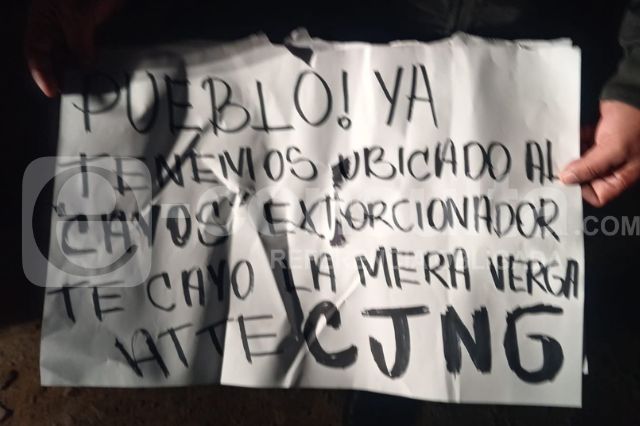 PUEBLO! YA
TENEMOS UBICADO AL
"CAYOS" EXTORCIONADOR
TE CAYO LA MERA VERGA
ATTE CJNG
.COM